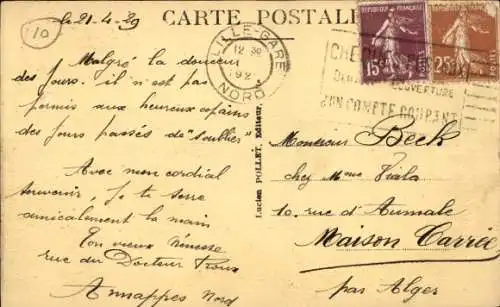 10
le 21-4-29
CARTE POSTALE
RÉPUBLIQUE FRANÇAISE
POSTES
15c
RÉPUBLIQUE FRANÇAISE
POSTES
25c
LILLE-GARE
12
192
NORD
CHEQUES
OUVERTURE
D'UN COMPTE COURANT
Malgré la douceur
des jours. il n'est pas
permis aux heureux copains
des jours passés de "s'oublier"
Avec mon cordial
souvenir, je te serre
amicalement la main
Ton vieux
rue du Docteur Roux
Annappes Nord
Lucien POLLET, Editeur,
Monsieur Beck
chez Mme Viala
10. rue d'Aumale
Maison Carrée
par Alger